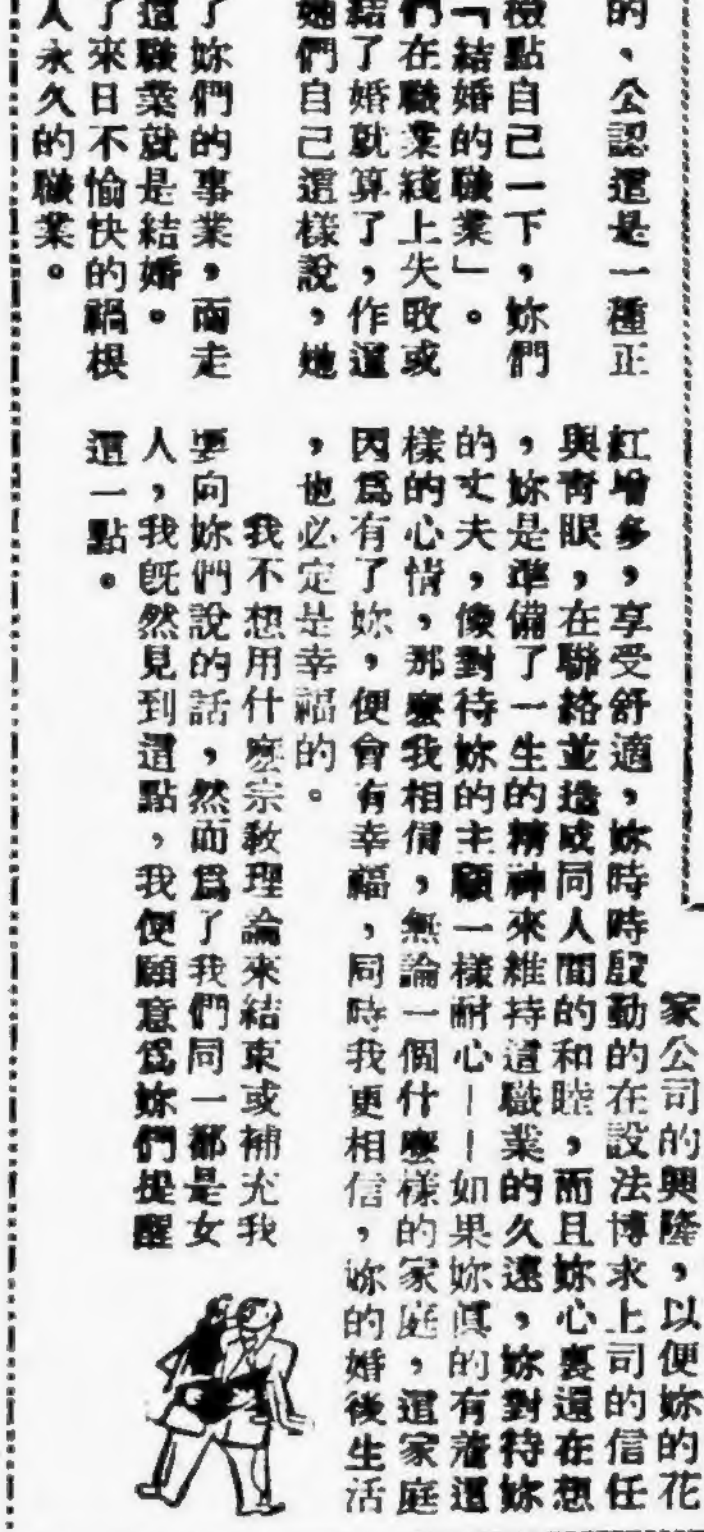 的、公認這是一種正
檢點自己一下，妳們
「結婚的職業」。
們在職業綫上失敗或
結了婚就算了，作這
她們自己這樣說，她
了妳們的事業，而走
這職業就是結婚。
了來日不愉快的禍根
人永久的職業。
家公司的興隆，以便妳的花
紅增多，享受舒適，妳時時殷勤的在設法博求上司的信任
與青眼，在聯絡並造成同人間的和睦，而且妳心裏還在想
，妳是準備了一生的精神來維持這職業的久遠，妳對待妳
的丈夫，像對待妳的主顧一樣耐心——如果妳眞的有着這
樣的心情，那麽我相信，無論一個什麽樣的家庭，這家庭
因爲有了妳，便會有幸福，同時我更相信，妳的婚後生活
，也必定是幸福的。
我不想用什麽宗敎理論來結束或補充我
要向妳們說的話，然而爲了我們同一都是女
人，我旣然見到這點，我便願意爲妳們提醒
這一點。